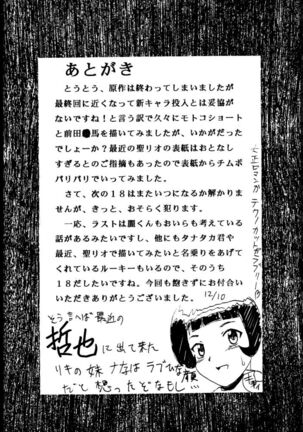 あとがき
とうとう、原作は終わってしまいましたが
最終回に近くなって新キャラ投入とは妥協が
ないですね！と言う訳で久々にモトコショート
と前田●馬を描いてみましたが、いかがだった
でしょーか？最近の聖リオの表紙はおとなし
すぎるとのご指摘もあったので表紙からチムポ
バリバリでいってみました。
さて、次の１８はまたいつになるか解かりま
せんが、きっと、おそらく犯ります。
一応、ラストは麗くんもおいらも考えている
話があるみたいですし、他にもタナタカ君や
最近、聖リオで描いてみたいと名乗りをあげて
くれているルーキーもいるので、そのうち
１８だしたいですね。今回も飽きずにお付合い
いただきありがとうございました。
12/10
そう言へば最近の
哲也に出て来た
リキの妹ナナはラブひな顔
だと想ったぞなもし!!